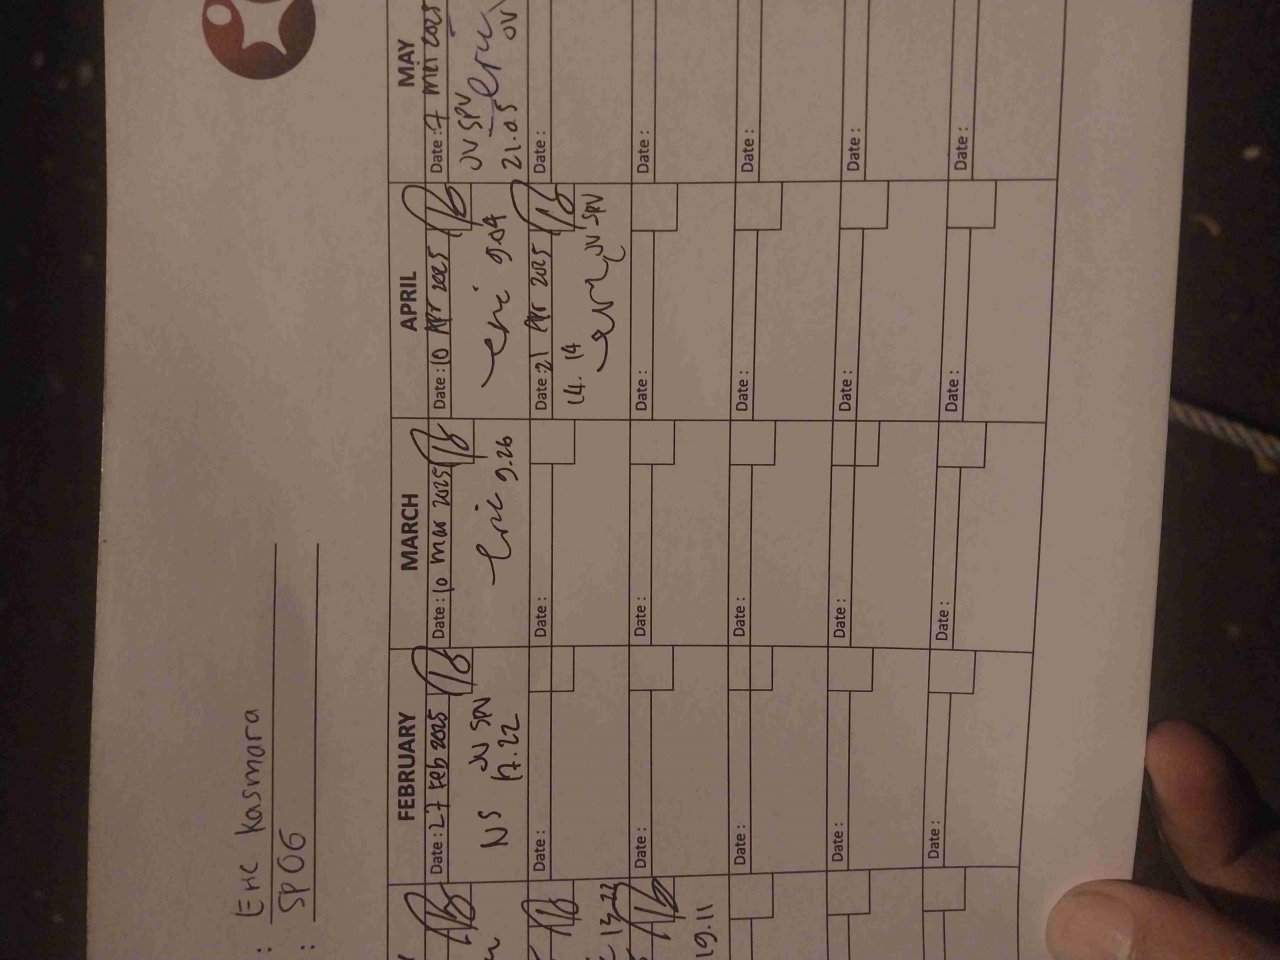 : Eric Kasmara
: SP06
FEBRUARY
Date : 27 Feb 2025
NS JV SPV
17.22
Date :
Date :
Date :
Date :
Date :
MARCH
Date : 10 Mar 2025
Eric 9.26
Date :
Date :
Date :
Date :
Date :
APRIL
Date : 10 Apr 2025
eric 9.04
Date : 21 Apr 2025
14.14
JV SPV
Date :
Date :
Date :
Date :
MAY
Date : 7 Mei 2025
JV SPV
eric
21.05
JV
Date :
Date :
Date :
Date :
Date :
19.11